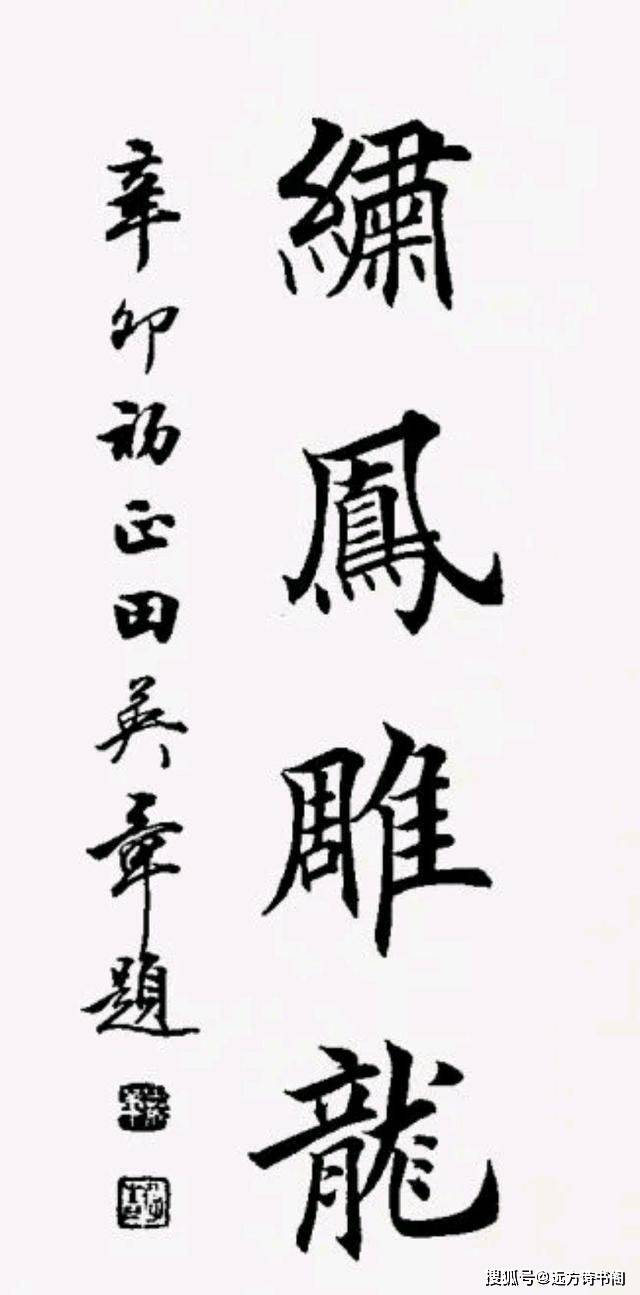 繡鳳雕龍
辛卯初正田英章題
搜狐号@远方诗书阁